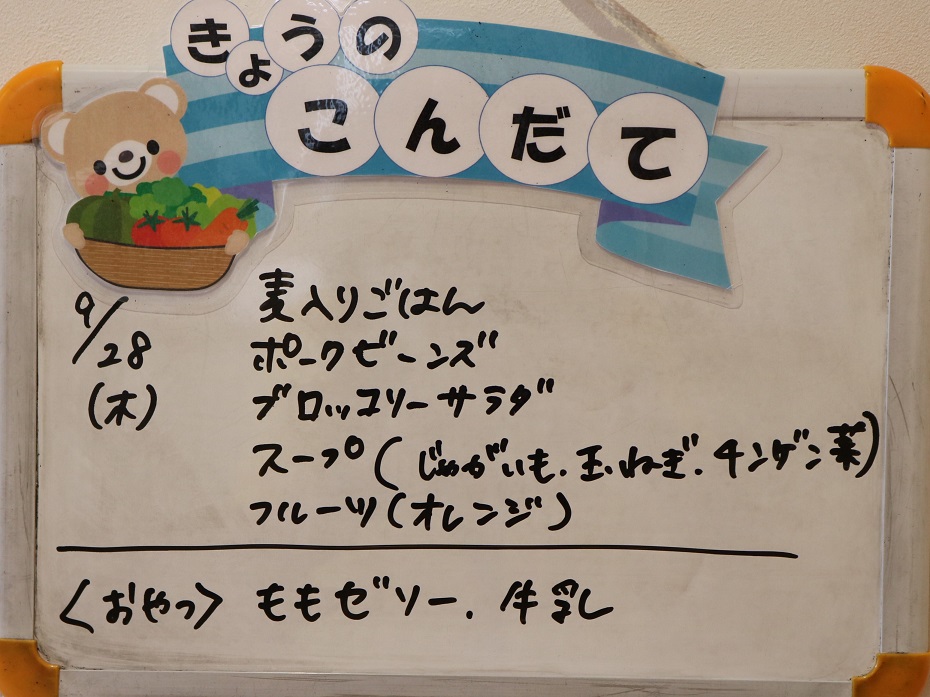 きょうの
こんだて
9/28
(木)
麦入りごはん
ポークビーンズ
ブロッコリーサラダ
スープ(じゃがいも.玉ねぎ.チンゲン菜)
フルーツ(オレンジ)
<おやつ> ももゼリー.牛乳